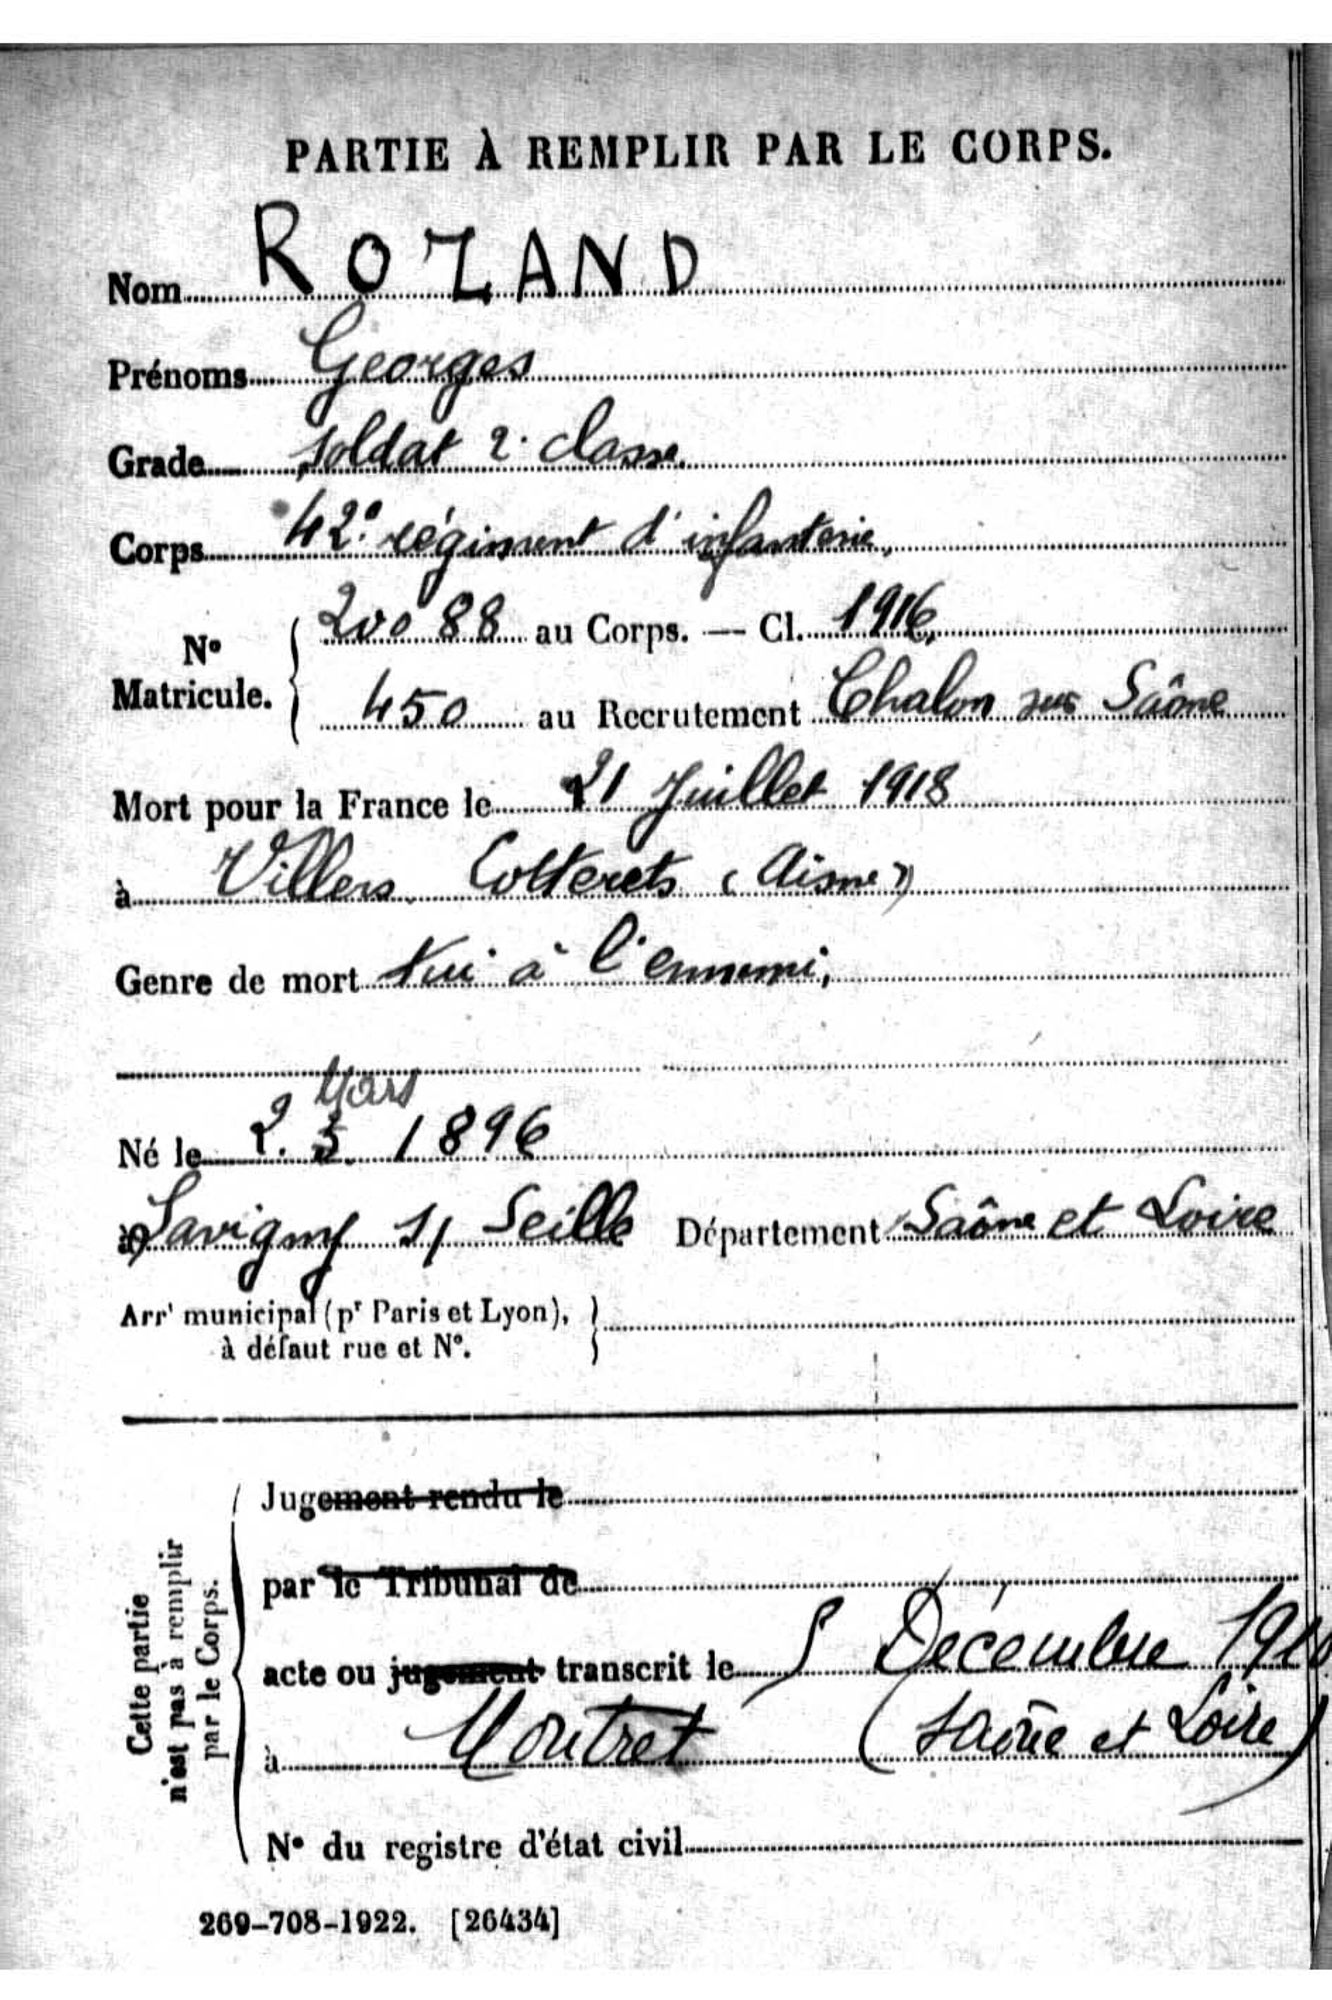 PARTIE À REMPLIR PAR LE CORPS.
Nom ROZAND
Prénoms Georges
Grade soldat 2e classe.
Corps 42e régiment d'infanterie,
No Matricule. 20088 au Corps. — Cl. 1916.
450 au Recrutement Chalon sur Saône
Mort pour la France le 21 Juillet 1918
à Villers Cotterets (Aisne)
Genre de mort tué à l'ennemi,
Mars
Né le 2. 3. 1896
à Savigny s/ Seille Département Saône et Loire
Arrt municipal (pr Paris et Lyon),
à défaut rue et N°.
Cette partie
n'est pas à remplir
par le Corps.
Jugement rendu le
par le Tribunal de
acte ou jugement transcrit le 5 Décembre
à Montret (Saône et Loire)
N° du registre d'état civil
269-708-1922. [26434]